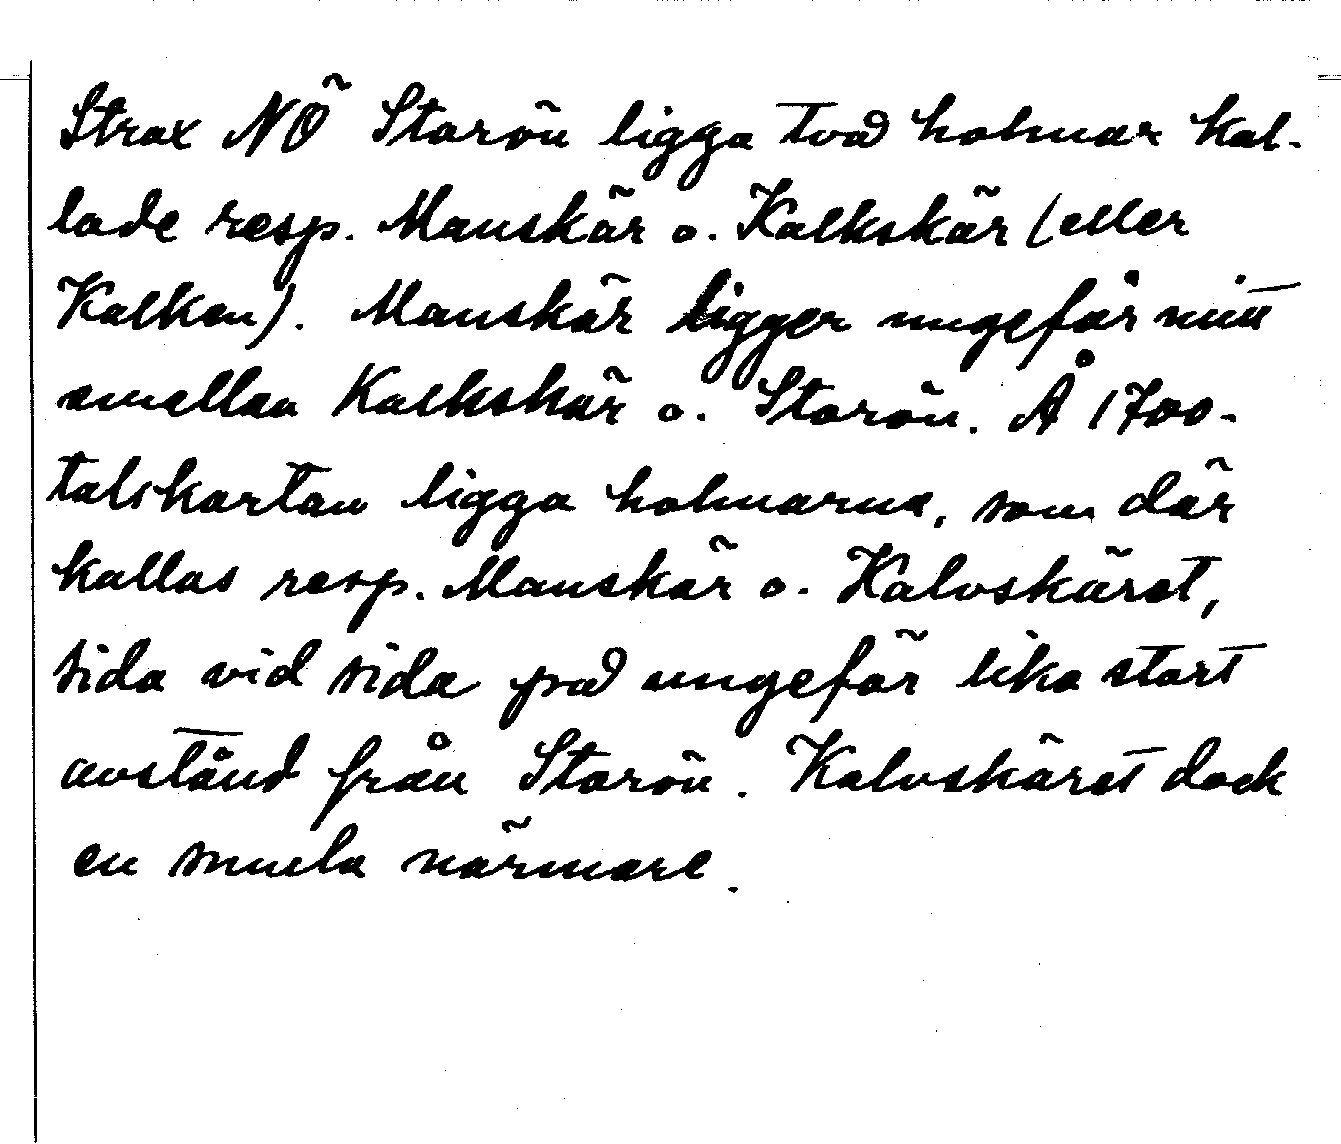 Strax NÖ Storön ligga två holmar kal-
lade resp. Manskär o. Kalkskär (eller
Kalken). Manskär ligger ungefär mitt
emellan Kalkskär o. Storön. Å 1700-
talskartan ligga holmarna, som där
kallas resp. Manskär o. Kalvskäret,
sida vid sida på ungefär lika stort
avstånd från Storön. Kalvskäret dock
en smula närmare.